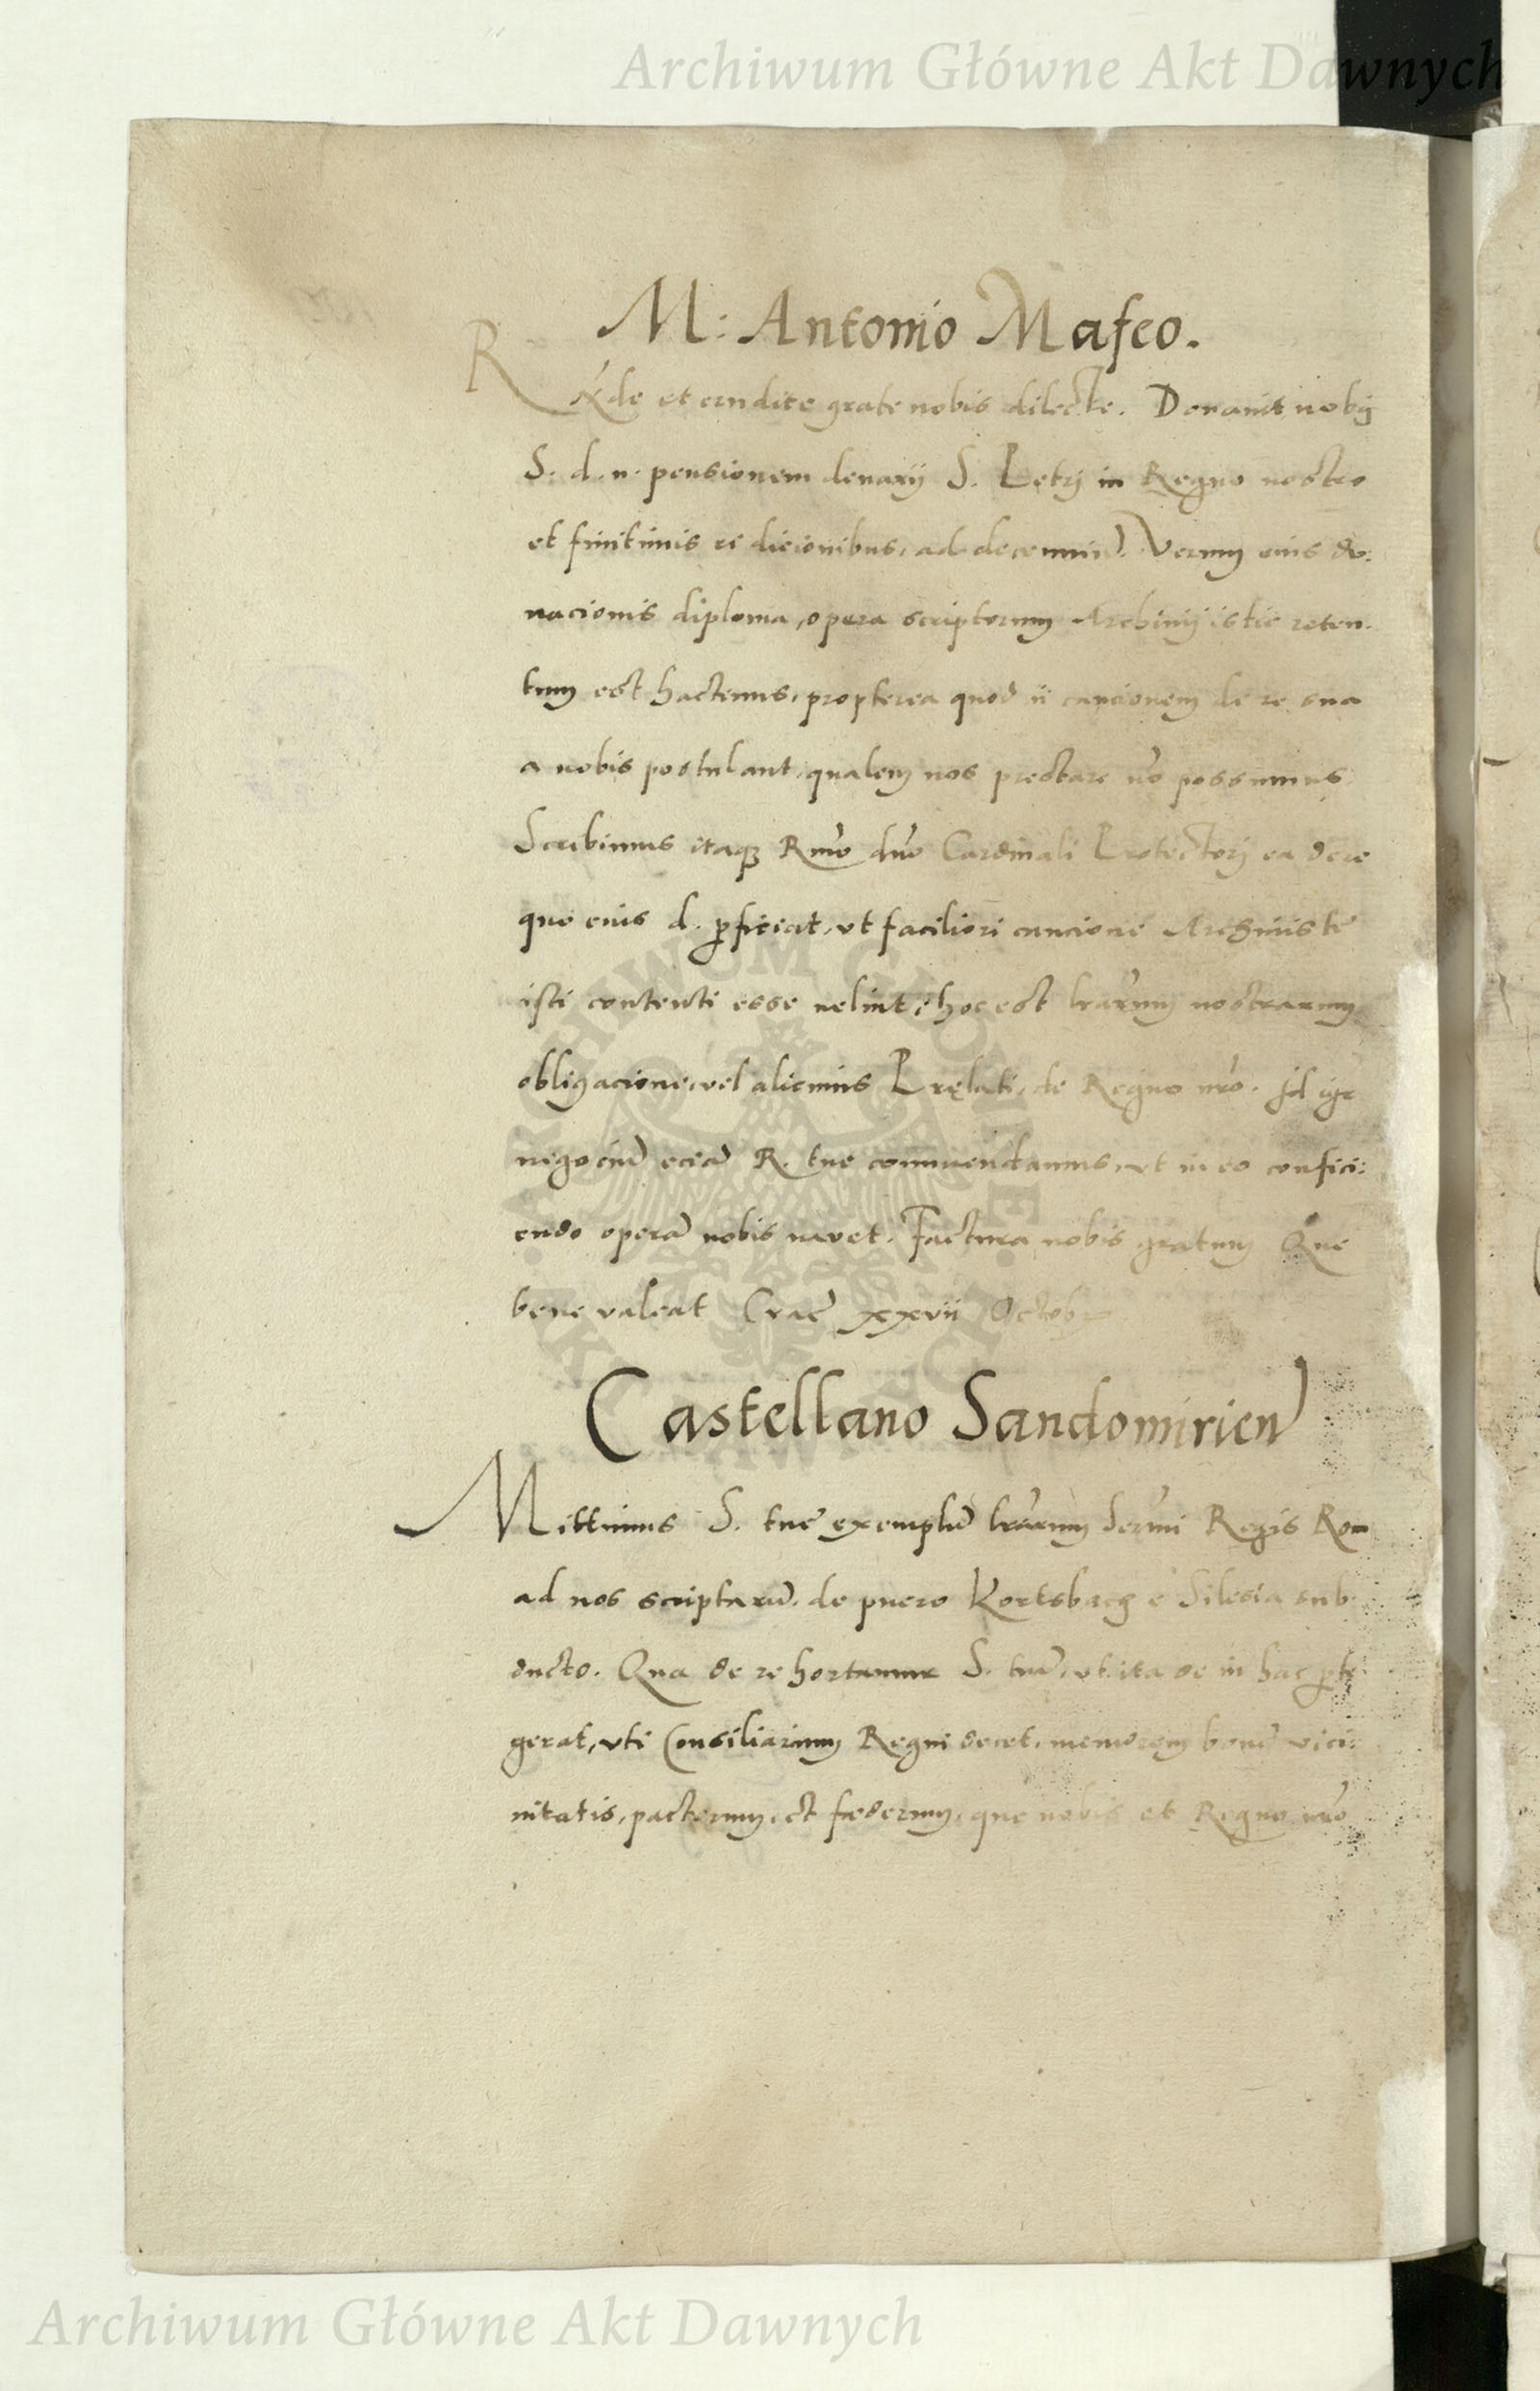 Archiwum Główne Akt Dawnych
M: Antonio Mafeo.
Rx̃de et erudite grate nobis dilecte. Donavit nobis
S. d. n. pensionem denarij S. Petri in Regno nostro
et finitimis ei dicionibus, ad decenniũ. Verum eius do:
nacionis diploma, opera scriptorum Archivij istic reten-
tum est hactenus, propterea quod ii caucionem de re sua
a nobis postulant, qualem nos prestare nõ possumus
Scribimus itaqꝫ Rm̃o dñо Cardinali Protectori ea de re
quo eius d. ꝑficiat, ut faciliori caucione Archivistę
isti contenti esse velint, hoc est lrãrum nostrarum
obligacione, vel alicuius Pręlati, de Regno nrõ. Id igr̃
negociũ eciã R. tuę commendamus, ut in eo confici:
endo operã nobis navet. Factura nobis gratum Quę
bene valeat Crac̃ xxvii Octobr
Castellano Sandomirien̄
Mittimus S. tuę exemplũ lrãrum Serm̃i Regis Rom
ad nos scriptarũ, de puero Kortsbach e Silesia sub
ducto. Qua de re hortamur S. tuã, ut ita se in hac ꝑte
gerat, uti Consiliarium Regni decet, memorem bonę vici:
nitatis, pactorum, et fęderum, quę nobis et Regno nrõ
ARCHIWUM GŁÓWNE AKT DAWNYCH
Archiwum Główne Akt Dawnych